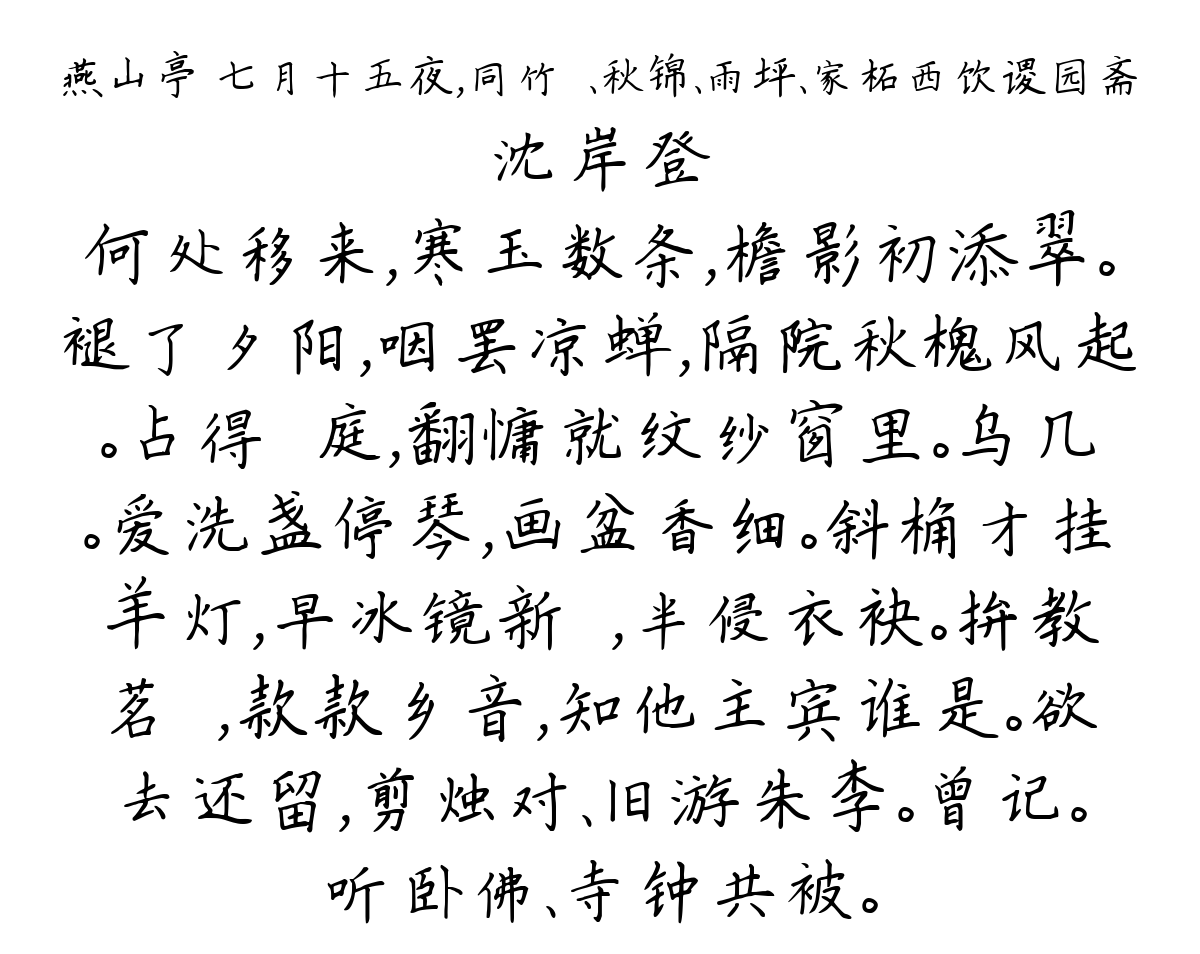 燕山亭 七月十五夜,同竹 、秋锦、雨坪、家柘西饮谡园斋
沈岸登
何处移来,寒玉数条,檐影初添翠。
褪了夕阳,咽罢凉蝉,隔院秋槐风起
。占得 庭,翻慵就纹纱窗里。乌几
。爱洗盏停琴,画盆香细。斜桷才挂
羊灯,早冰镜新 ,半侵衣袂。拚教
茗 ,款款乡音,知他主宾谁是。欲
去还留,剪烛对、旧游朱李。曾记。
听卧佛、寺钟共被。